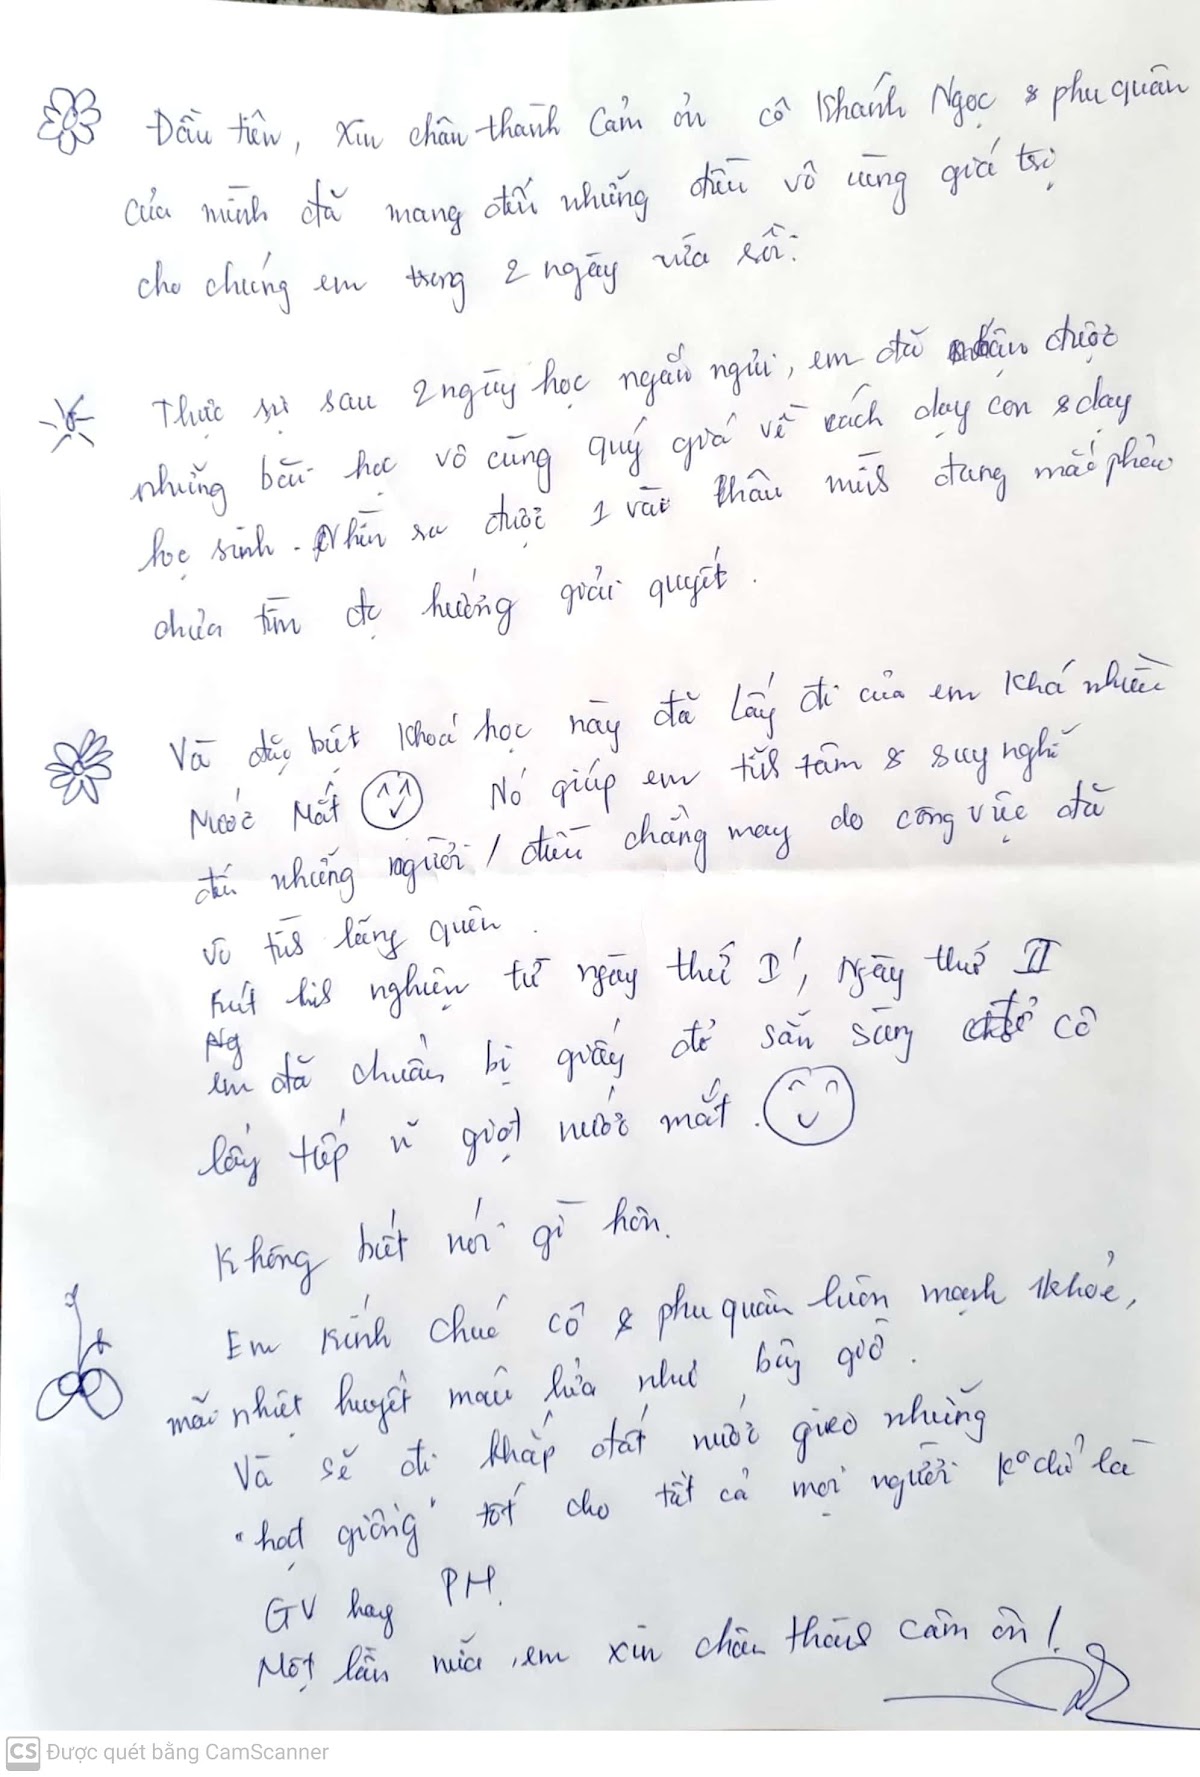 Đầu tiên, Xin chân thành cảm ơn cô Khánh Ngọc & phu quân
của mình đã mang đến những điều vô cùng giá trị
cho chúng em trong 2 ngày vừa rồi.
Thực sự sau 2 ngày học ngắn ngủi, em đã nhận được
những bài học vô cùng quý giá về cách dạy con & dạy
học sinh. Nhìn ra được 1 vài thân mình đang mắc phải
chưa tìm đc hướng giải quyết.
Và đặc biệt khoá học này đã lấy đi của em khá nhiều
Nước Mắt Nó giúp em tĩnh tâm & suy nghĩ
đến những người / điều chẳng may do công việc đã
vô tình lãng quên.
Rút kinh nghiệm từ ngày thứ I, Ngày thứ II
Ng
em đã chuẩn bị giấy đỏ sẵn sàng để cô
lấy tiếp gượt nước mắt.
Không biết nói gì hơn.
Em kính chúc cô & phu quân luôn mạnh khỏe,
mãi nhiệt huyết máu lửa như bây giờ.
Và sẽ đi khắp đất nước gieo những
"hạt giống" tốt cho tất cả mọi người ko chỉ là
GV hay PH.
Một lần nữa, em xin chân thành cảm ơn!
CS Được quét bằng CamScanner